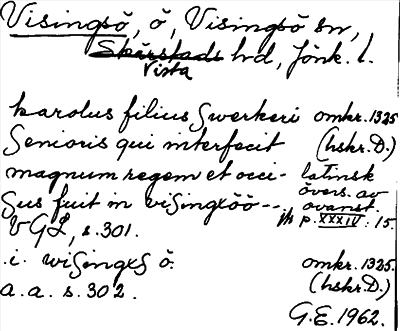 Visingsö, ö, Visingsö sn,
Skärstads hd, Jönk. l.
Vista
karolus filius Swerkeri omkr. 1325
Senioris qui interfecit (hskr. D.)
magnum regem et occi- latinsk
sus fuit in visingxöö-- övers. av
ovanst.
VGL, s. 301. p. XXXIV: 15.
.i. wisingxs ö. omkr. 1325.
a.a. s. 302. (hskr. D.)
G.E. 1962.